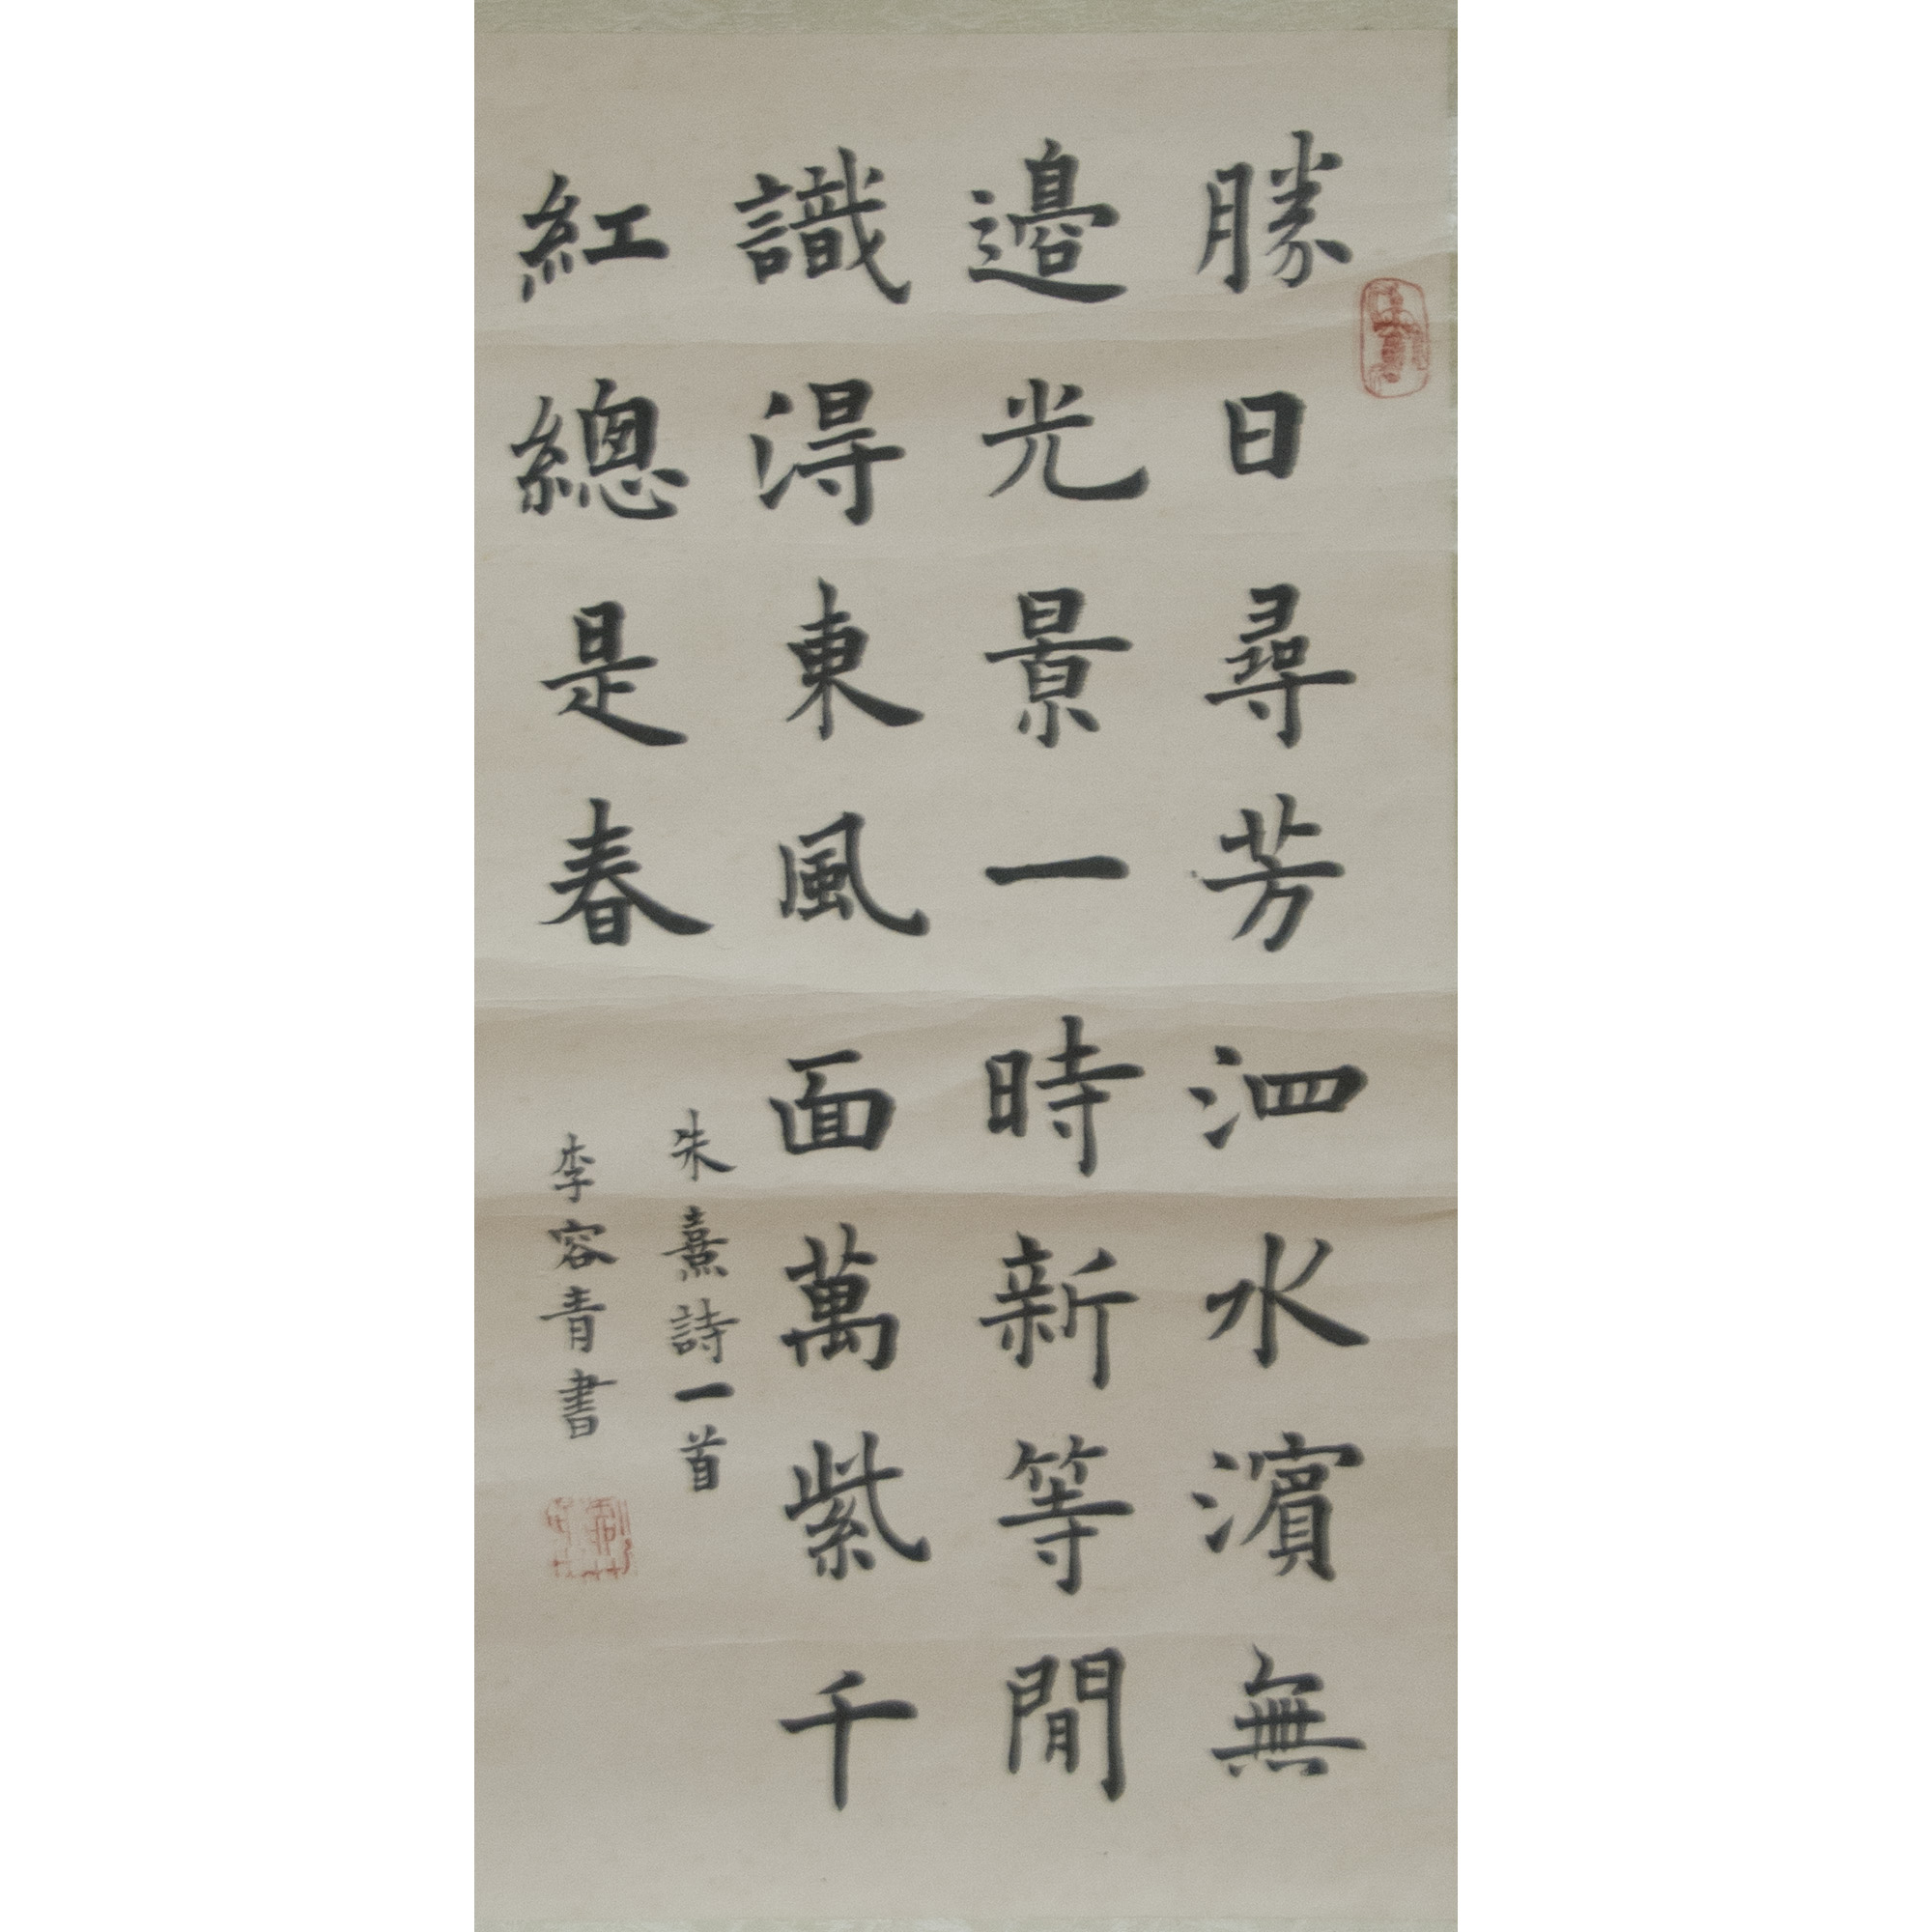 勝日尋芳泗水濱無
邊光景一時新等閒
識得東風面萬紫千
紅總是春
朱熹詩一首
李容青書